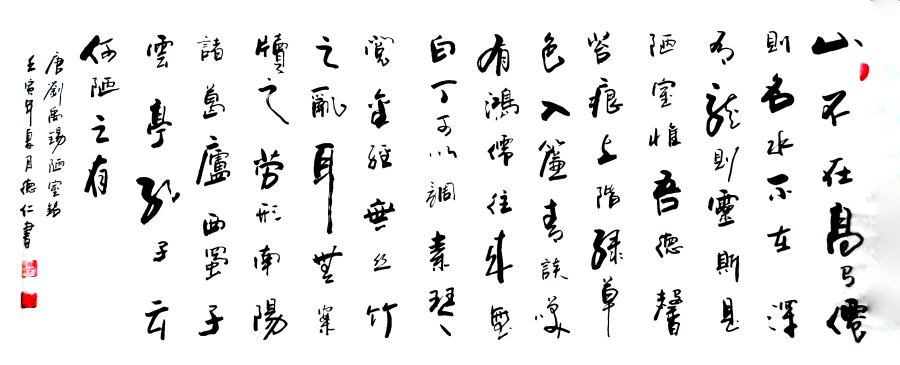 山不在高有僊
則名水不在深
有龍則靈斯是
陋室惟吾德馨
苔痕上階緑草
色入簾青談笑
有鴻儒往来無
白丁可以調素琴
閲金經無丝竹
之亂耳無案
牘之勞形南陽
諸葛廬西蜀子
雲亭孔子云
何陋之有
唐劉禹錫陋室銘
壬寅年夏月德仁書